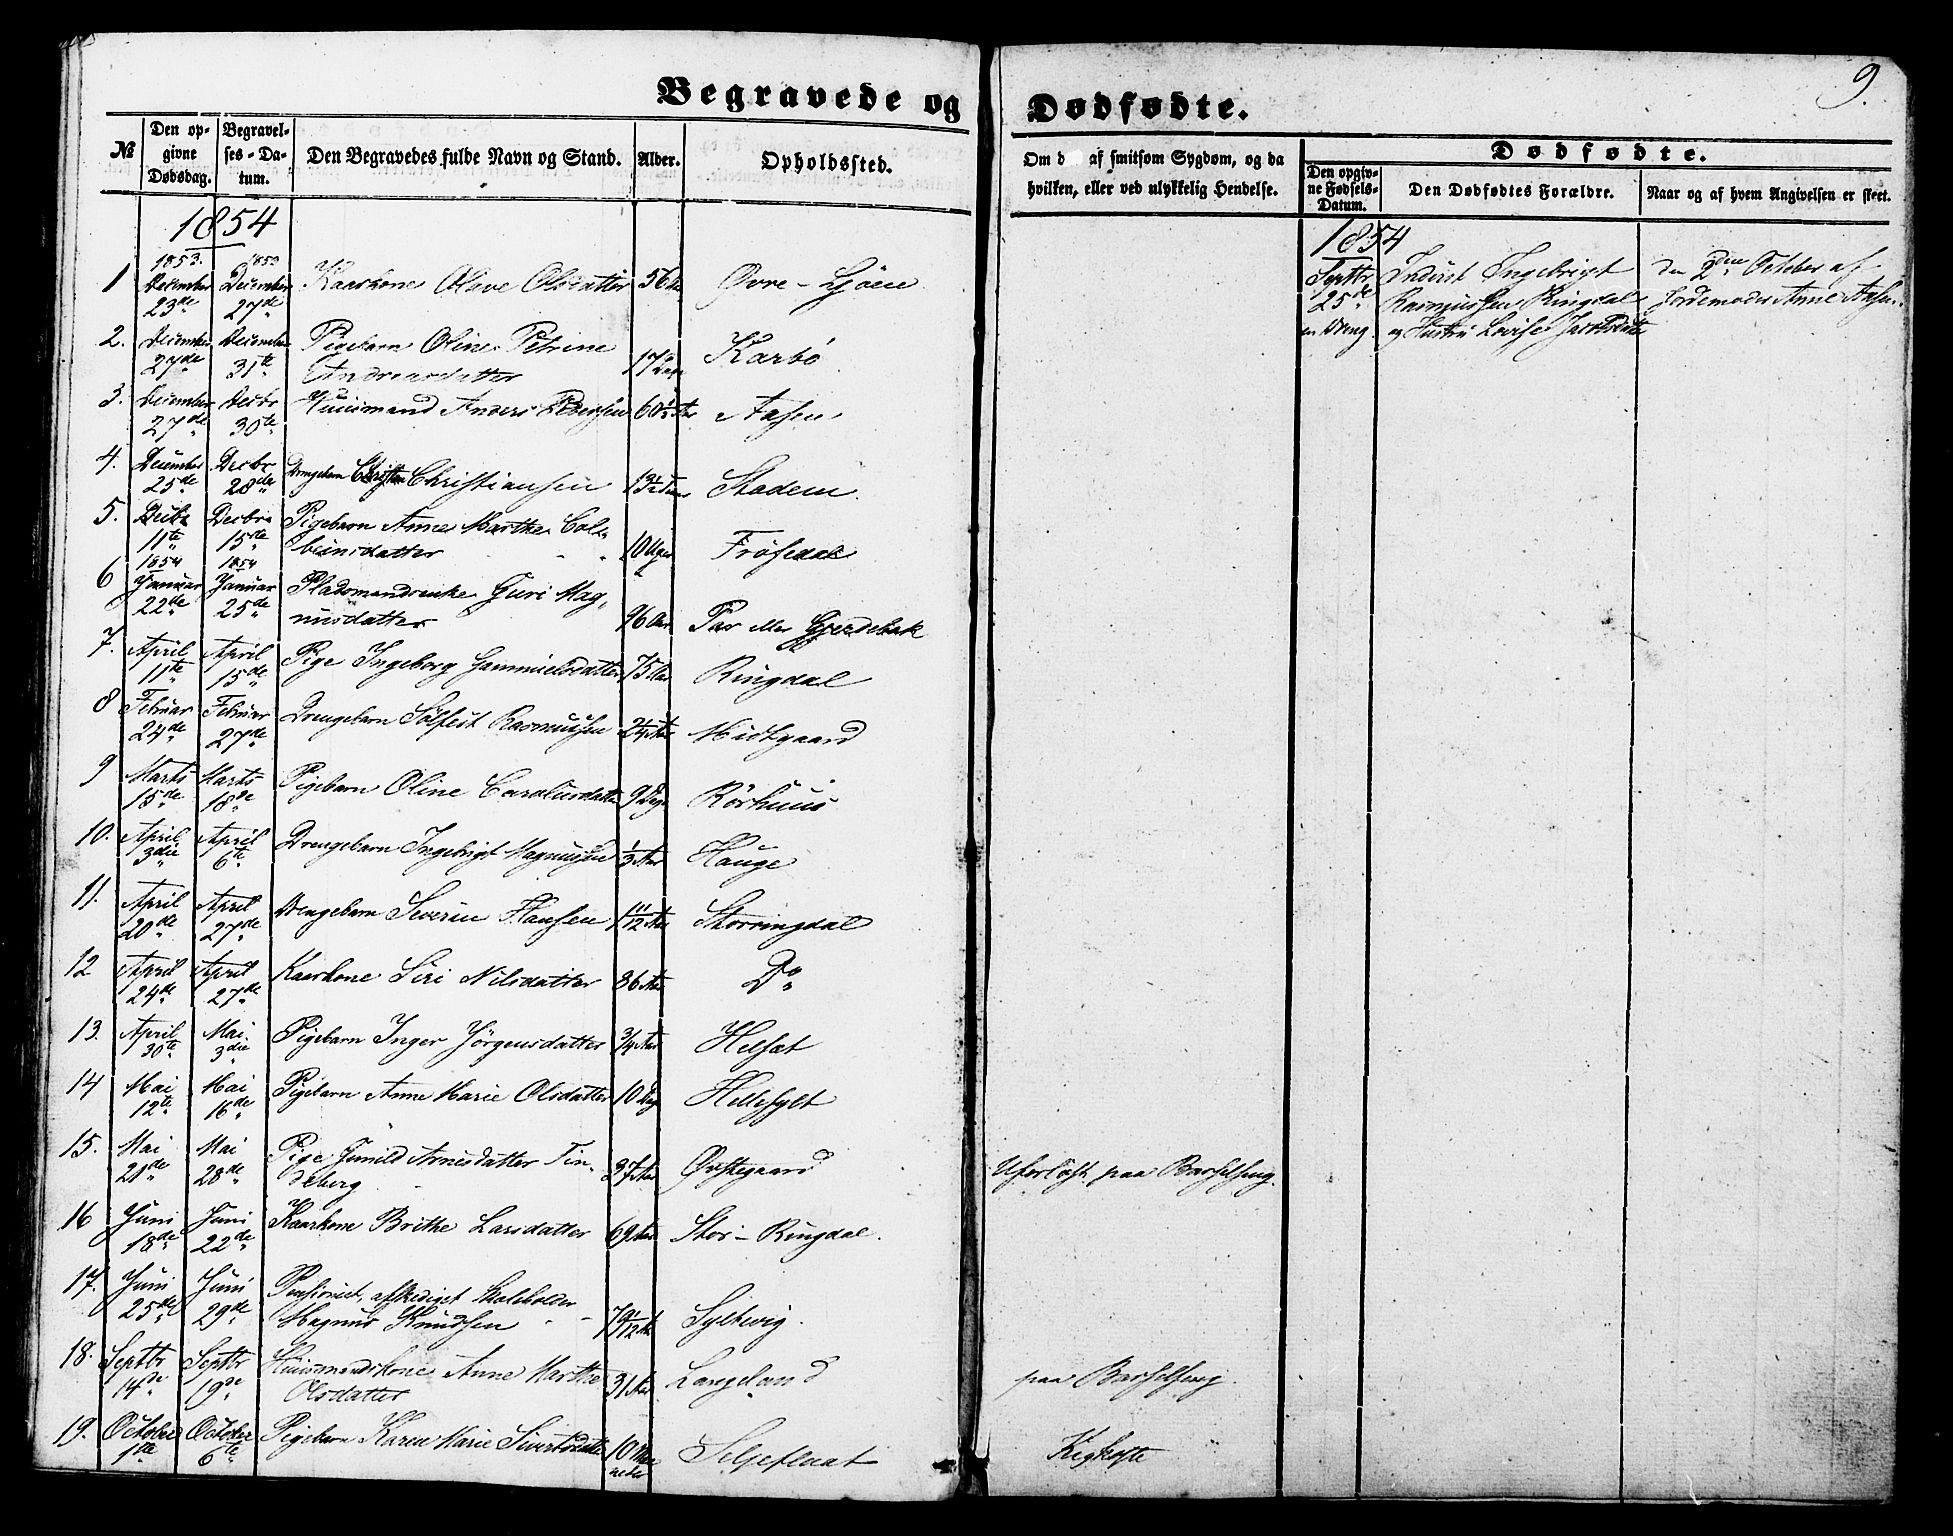 Begravede og Dødfødte.
9.
№ Den op- Begravel- Den Begravedes fulde Navn og Stand. Alder. Opholdssted.
givne ses-Da-
Dødsdag. tum.
Om d af smitsom Sygdom, og da
hvilken, eller ved ulykkelig Hendelse.
Dødfødte.
Den opgiv-
ne Fødsels-
Datum.
Den Dødfødtes Forældre.
Naar og af hvem Angivelsen er skeet.
1854
1853. 1853
1 December December Kaarkone Olave Olsdatter 56 Aar Øvre-Ljøen
23de 27de
2. December December Pigebarn Oline Petrine
27de 31te Andreasdatter 17 Dage Karbø
3. December Decbr Huusmand Anders 60½ Aar Aasen
27de 30te
4. December Decbr Drengebarn Christen Christiansen Stadem.
25de 28de
5. Decbr Decbr Pigebarn Anne Marthe Col-
11te 15de beinsdatter 10 Uger Frøisedal
1854 1854
6 Januar Januar Pladsmandsenke Guri Mag-
22de 25de nusdatter 96 Aar eller Gjerdebak
7. April April Pige Ingeborg Gammielsdatter 75 Aar Ringdal
11te 15de
8 Februar Februar Drengebarn Sølfest Rasmussen Aar Midtgaard
24de 27de
9 Marts Marts Pigebarn Oline Carolusdatter 9 Dage Rørhuus
15de 18de
10. April April Drengebarn Ingebrigt Magnussen 1/3 Aar Hauge
3die 6te
11. April April Drengebarn Severin Hansen 1 11/12 Aar Storringdal
20de 27de
12 April April Kaarkone Siri Nilsdatter 86 Aar Do
24de 27de
13. April Mai Pigebarn Inger Jørgensdatter 3/4 Aar Helset
30te 3die
14 Mai Mai Pigebarn Anne Marie Olsdatter 10 Dag Hellesylt
12te 16de
15. Mai Mai Pige Gunild Arnesdatter Tin-
21de 28de deberg 37 Aar Øvstegaard Uforløst paa Barselseng.
16 Juni Juni Kaarkone Brithe Larsdatter 69 Aar Stor-Ringdal.
18de 22de
17. Juni Juni Pensionist, afskediget Skoleholder
25de 29de Magnus Knudsen 79 1/12 Aar Syltevig.
18. Septbr Septbr Huusmandskone Anne Marthe
14de 19de Olsdatter 31 Aar Langeland paa Barselseng.
19. October October Pigebarn Karen Marie Sivertsdatter 10 Maa-
1ste 6te neder Seljeflaat Kighoste
1854
Septbr Inderst Ingebrigt den 2den October af
25de Rasmussen Ringdal Jordemoder Anne Aasen.
en Dreng og Hustru Lovise